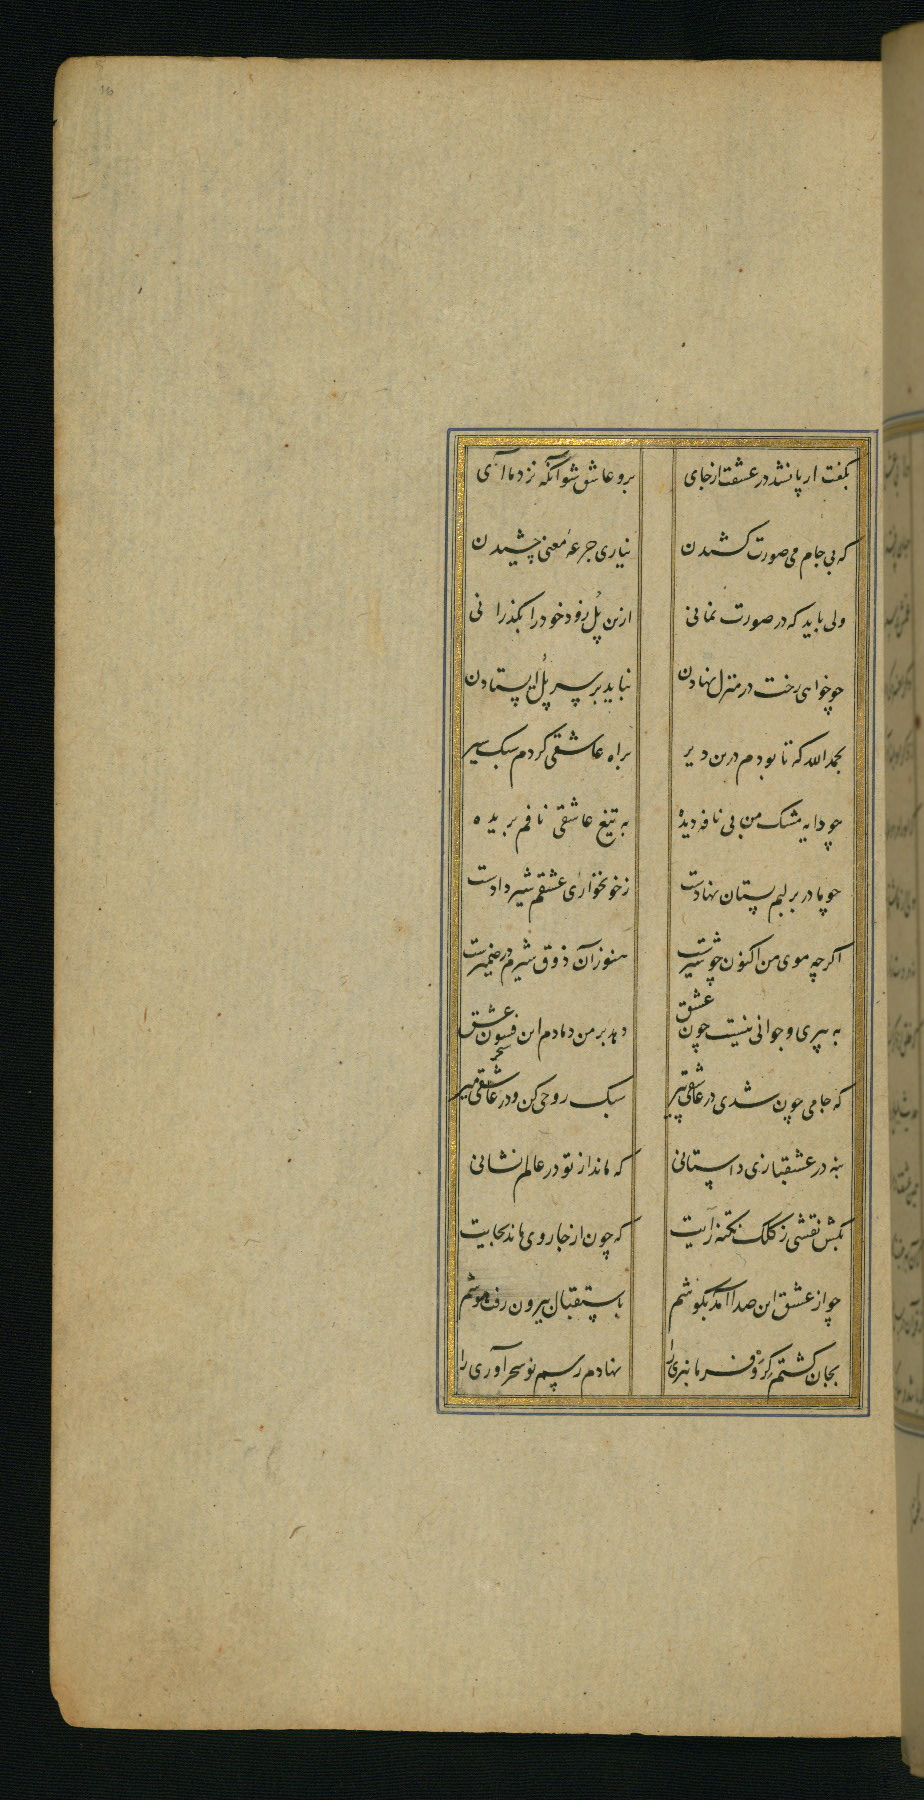 بگفت ار پا نشد در عشقت از جای برو عاشق شو آنگه نزد ما آی
که بی جام می صورت کشیدن نیاری جرعهٔ معنی چشیدن
ولی باید که در صورت نمانی ازین پُل زود خود را بگذرانی
چو خواهی رخت در منزل نهادن نباید بر سر پُل ایستادن
بحمد الله که تا بودم درین دیر براه عاشقی کردم سبک سیر
چو دایه مشک من بی نافه دیده به تیغ عاشقی نافم بریده
چو مادر بر لبم پستان نهادست ز خونخواری عشقم شیر دادست
اگرچه موی من اکنون چو شیرست هنوز آن ذوق شیرم در ضمیرست
به پیری و جوانی نیست چون عشق دهد بر من دمادم این فسون عشق
سحر
که جامی چون شدی در عاشقی پیر سبک روحی کن و در عاشقی میر
بنه در عشقبازی داستانی که ماند از تو در عالم نشانی
بکش نقشی ز کلک نکته زایت که چون از جا روی ماند بجایت
چو از عشق این صدا آمد بگوشم باستقبال بیرون رفت هوشم
بجان گشتم گرو فرمانبری را نهادم رسم نو سحرآوری را